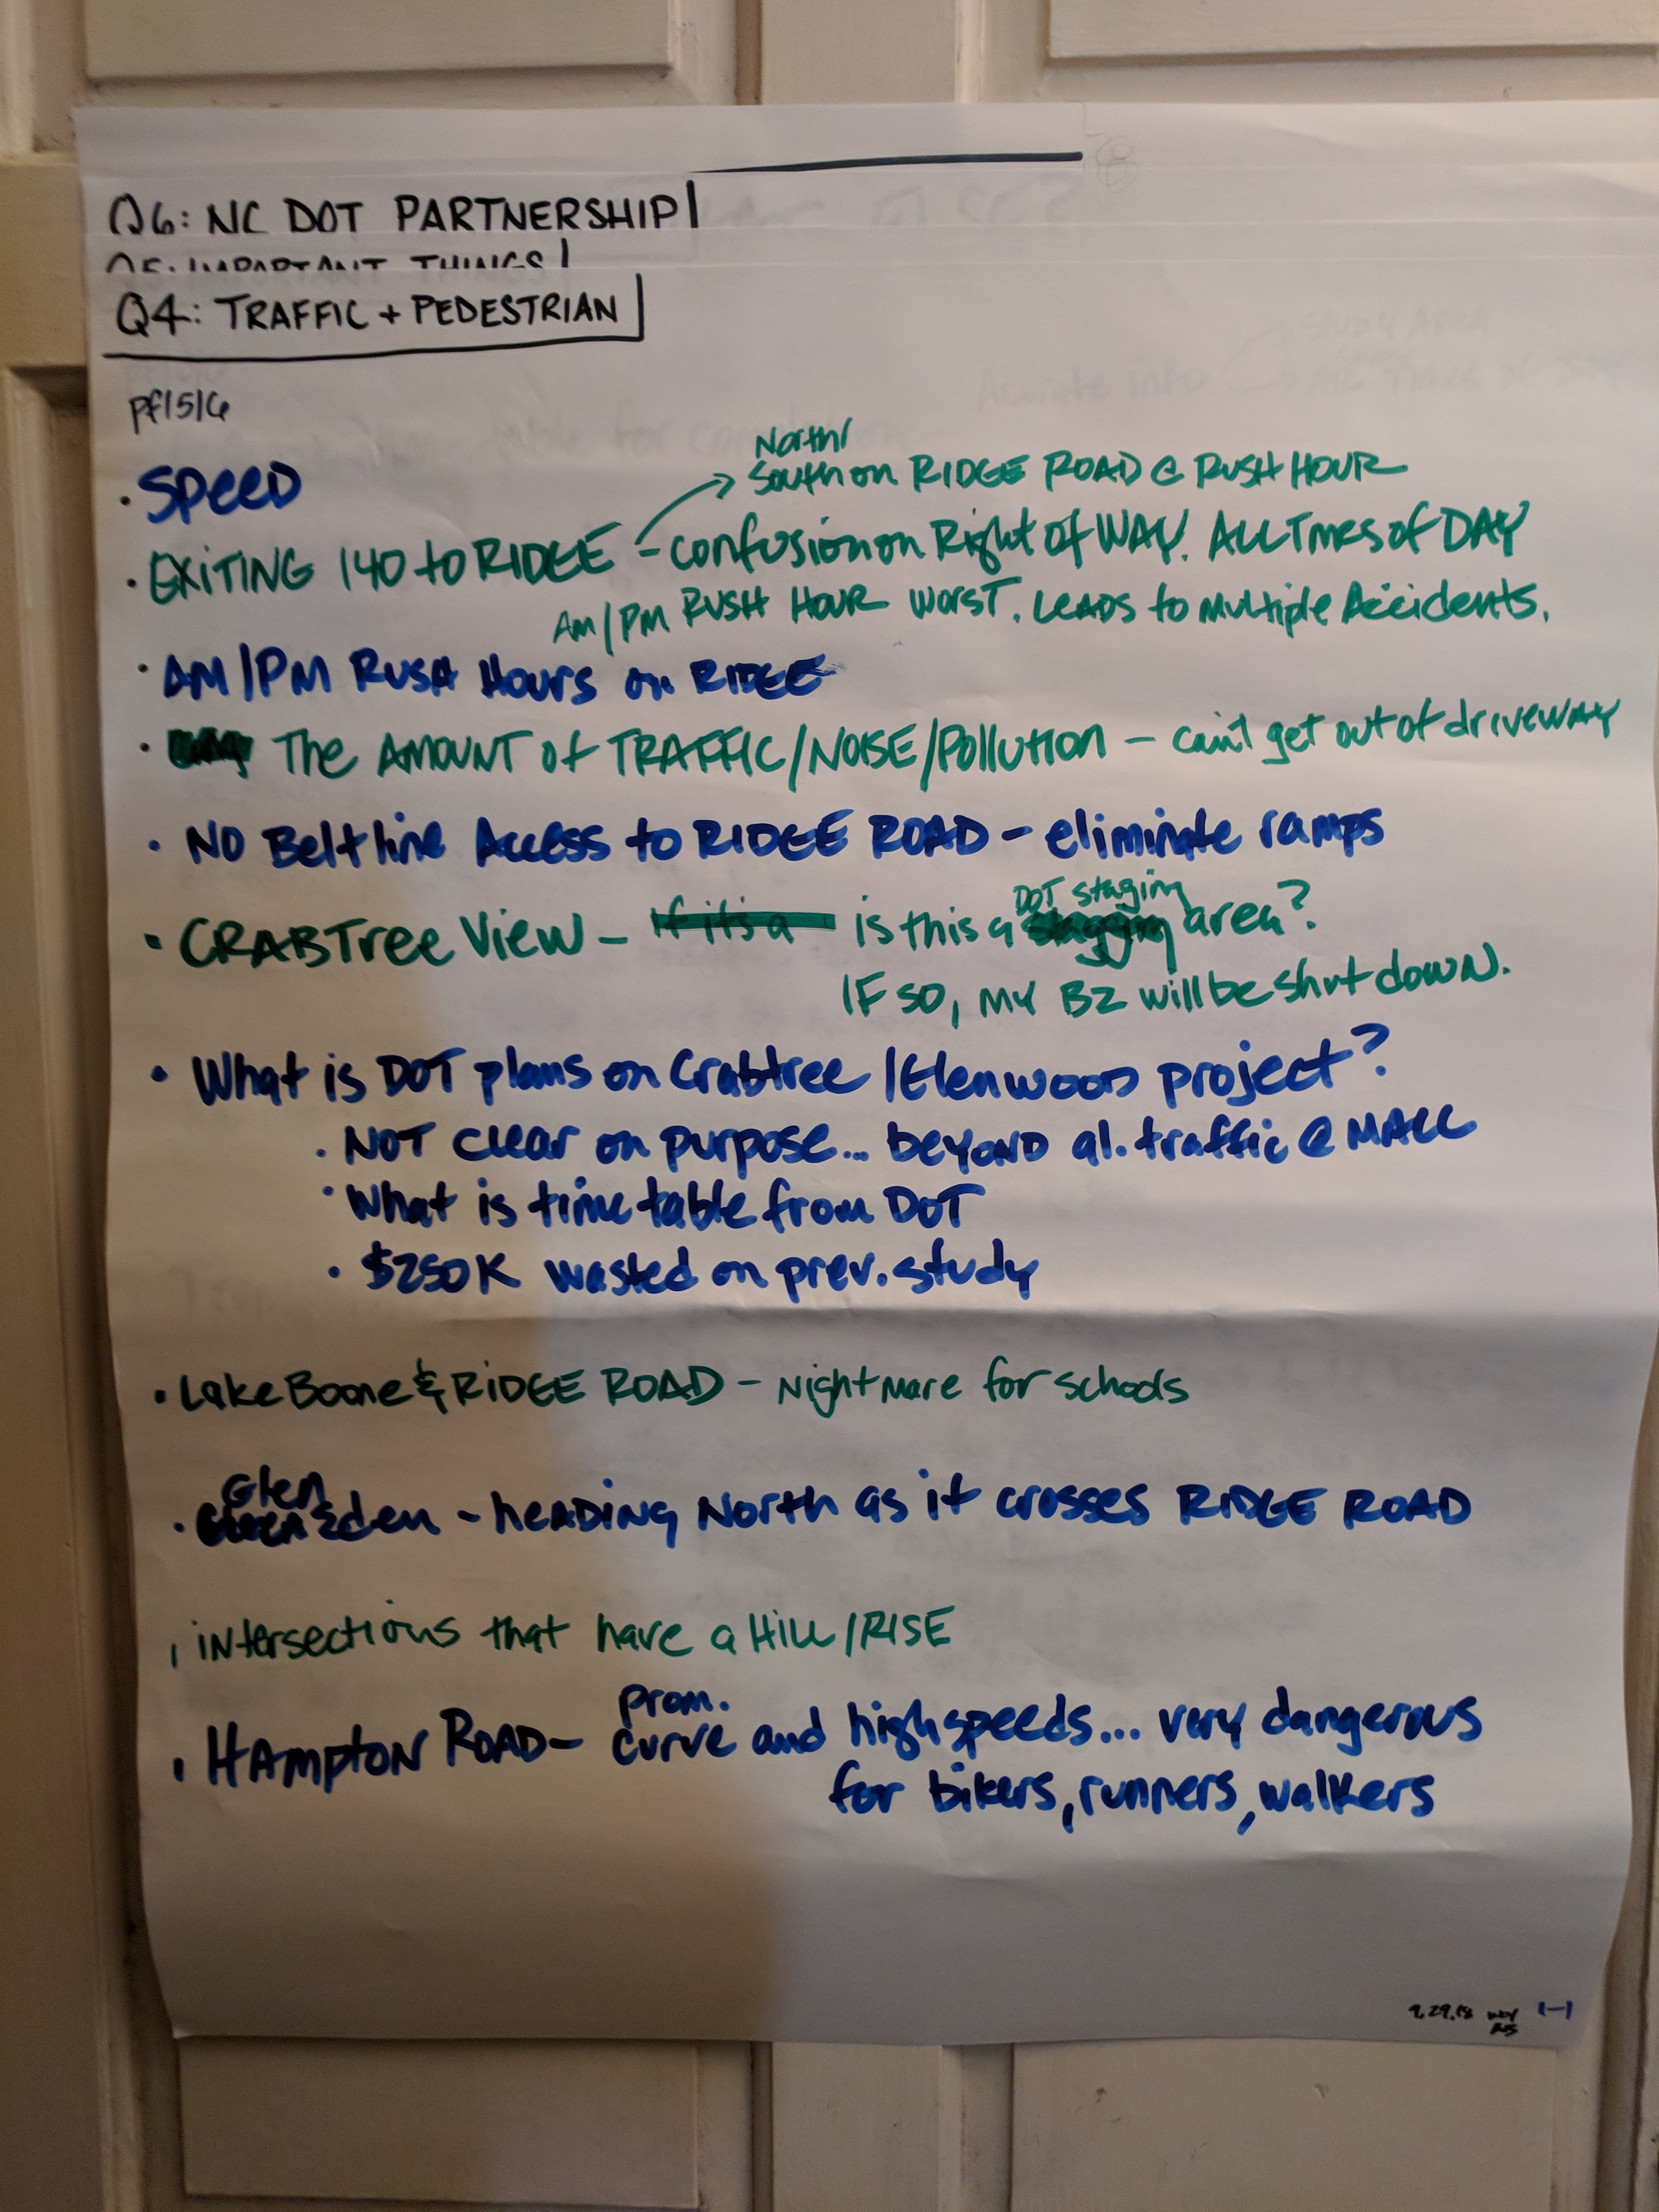 Q6: NC DOT PARTNERSHIP
Q5: IMPORTANT THINGS
Q4: TRAFFIC + PEDESTRIAN
• SPEED
North/
South on RIDGE ROAD @ RUSH HOUR
• EXITING I40 to RIDGE – confusion on Right of WAY. ALL Times of DAY
AM/PM RUSH HOUR WORST. LEADS to Multiple Accidents.
• AM/PM RUSH HOURS on RIDGE
• The AMOUNT of TRAFFIC/NOISE/POLLUTION – can't get out of driveway
• NO Beltline Access to RIDGE ROAD – eliminate ramps
• CRABTree View – If it's a is this a DOT staging area?
IF SO, MY BZ will be shut down.
• What is DOT plans on Crabtree /Glenwood project?
• NOT clear on purpose... beyond al. traffic @ MALL
• What is time table from DOT
• $250K wasted on prev. study
• Lake Boone & RIDGE ROAD – Nightmare for schools
• Glen Eden – heading North as it crosses RIDGE ROAD
• intersections that have a HILL/RISE
prom.
• HAMPTON ROAD – curve and high speeds... very dangerous
for bikers, runners, walkers
9.29.18